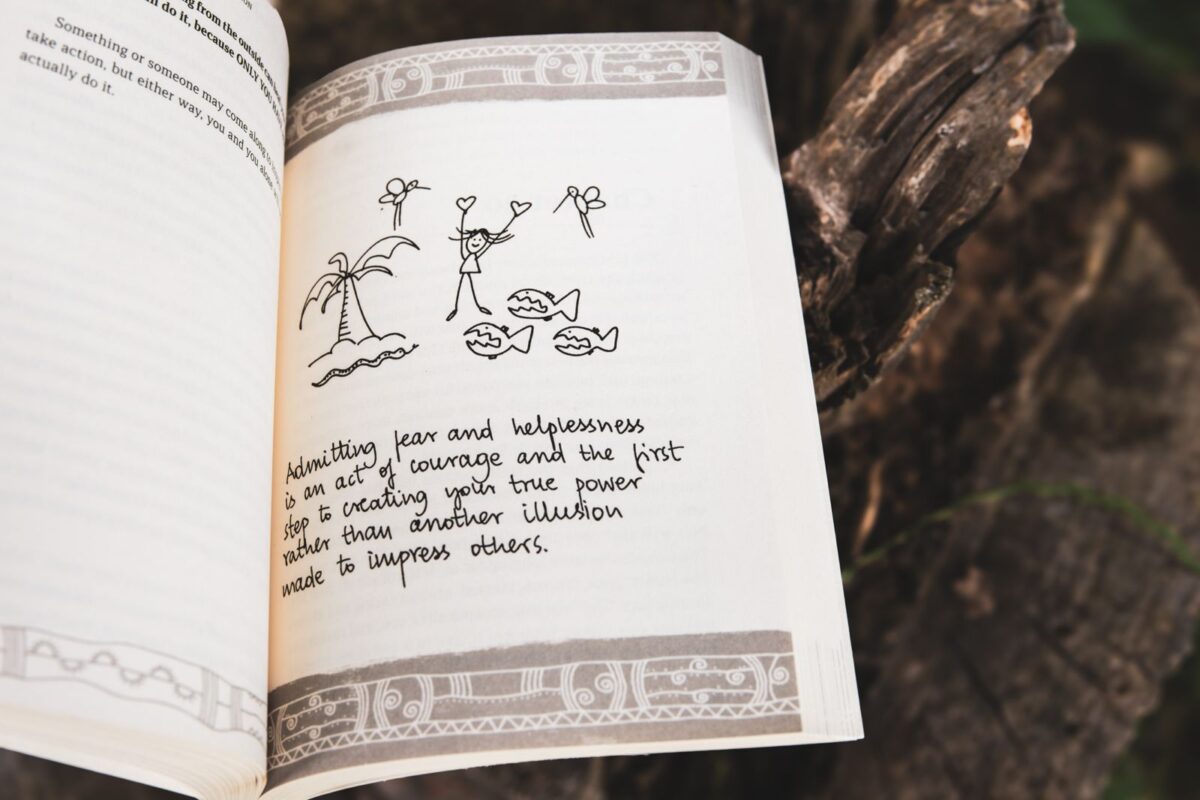 from the outside can
do it, because ONLY YOU
Something or someone may come along to
take action, but either way, you and you alone
actually do it.
Admitting fear and helplessness
is an act of courage and the first
step to creating your true power
rather than another illusion
made to impress others.